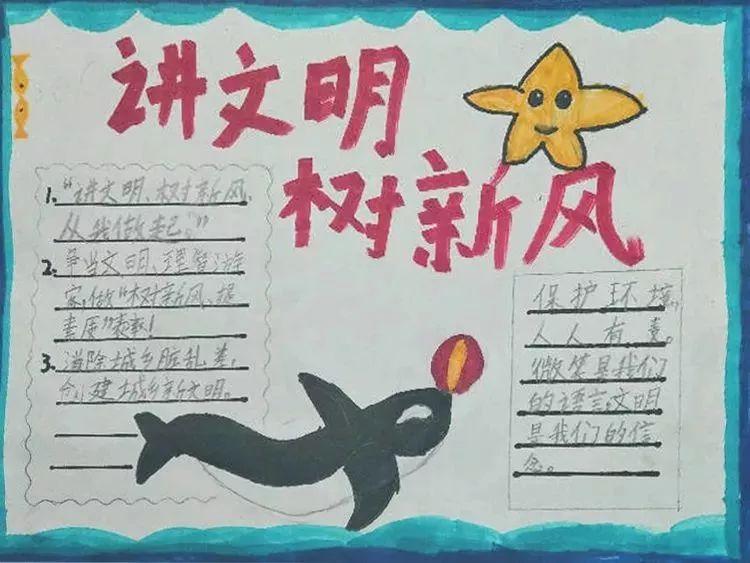 讲文明
树新风
1. "讲文明、树新风,
从我做起。"
2. 争当文明、理智游
客,做"树新风、提
素质"表率!
3. 消除城乡脏乱差,
创建城乡新文明。
保护环境,
人人有责。
微笑是我们
的语言,文明
是我们的信
念。